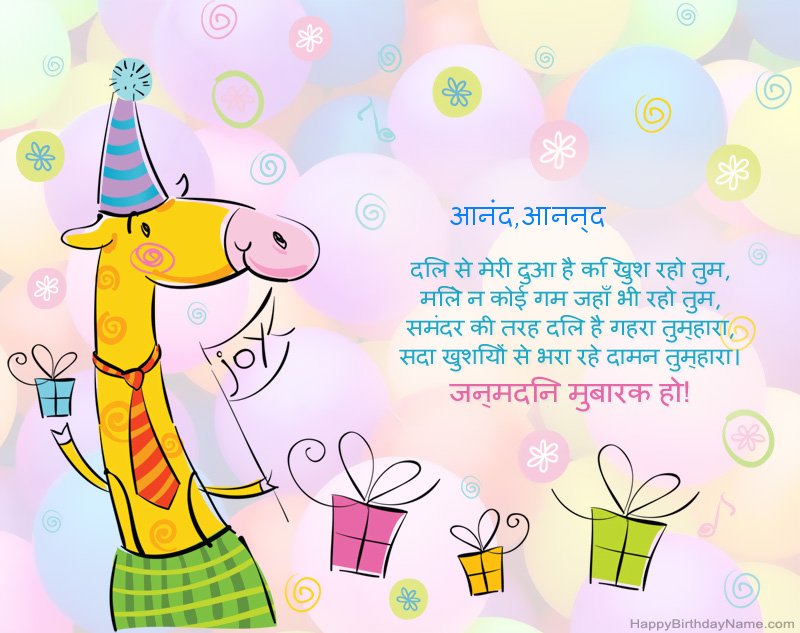 आनंद,आनन्द
दलि से मेरी दुआ है कि खुश रहो तुम,
मलिे न कोई गम जहाँ भी रहो तुम,
समंदर की तरह दलि है गहरा तुम्हारा,
सदा खुशयिों से भरा रहे दामन तुम्हारा।
जन्मदनि मुबारक हो!
joy
HappyBirthdayName.com